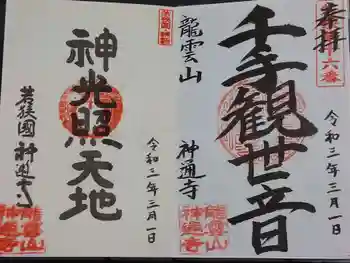 奉拝
十六番
千手観世音
令和三年三月一日
龍雲山
神通寺
神光照天地
令和三年三月一日
若狭國神通寺
龍雲山
神通寺
龍雲山
神通寺